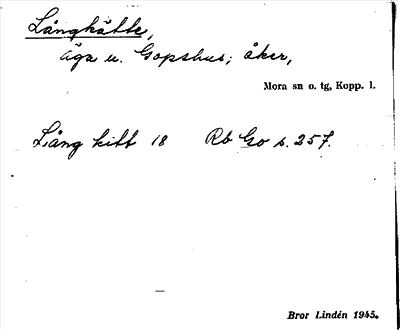 Långhätte,
äga u. Gopshus; åker,
Mora sn o. tg, Kopp. l.
Lång hitt 18 Rb Go s. 257.
Bror Lindén 1945.